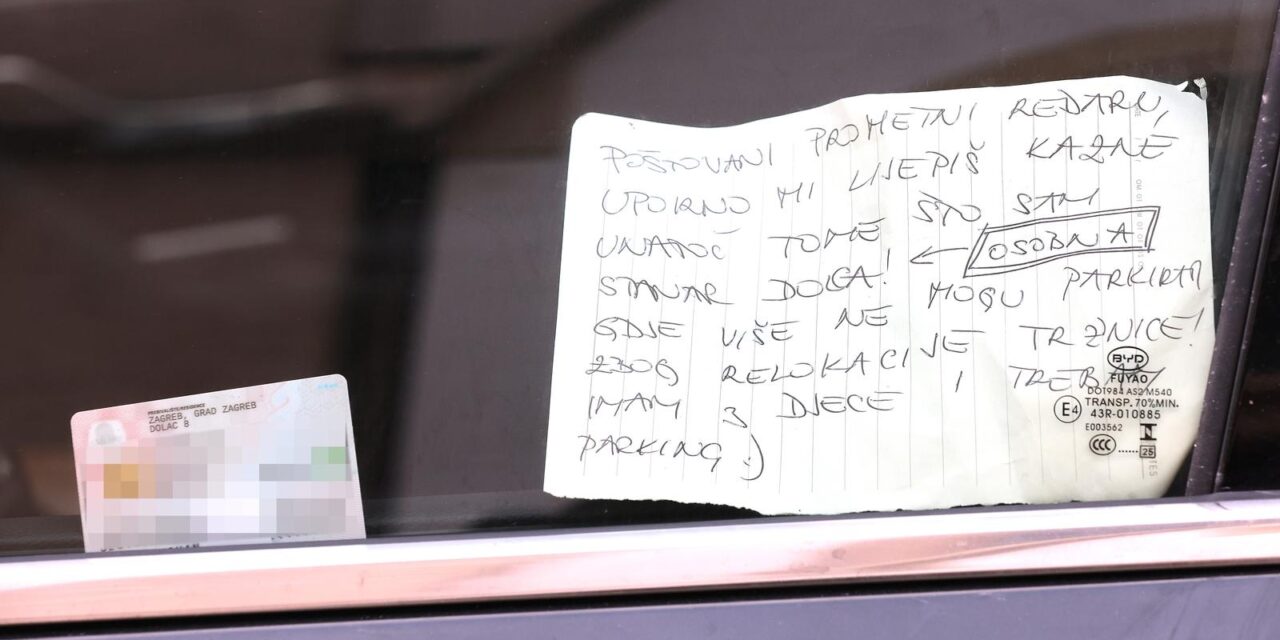 POŠTOVANI PROMETNI REDARU,
UPORNO MI LIJEPIŠ KAZNE
UNATOČ TOME ŠTO SAM
STANAR DOLCA! ← OSOBNA
GDJE VIŠE NE MOGU PARKIRAT
ZBOG RELOKACIJE TRŽNICE!
IMAM 3 DJECE I TREBAM
PARKING :)
BYD
FUYAO
DOT984 AS2 M540
TRANSP. 70%MIN.
E4 43R-010885
E003562
CCC ...... 25
PREBIVALIŠTE/RESIDENCE
ZAGREB, GRAD ZAGREB
DOLAC 8